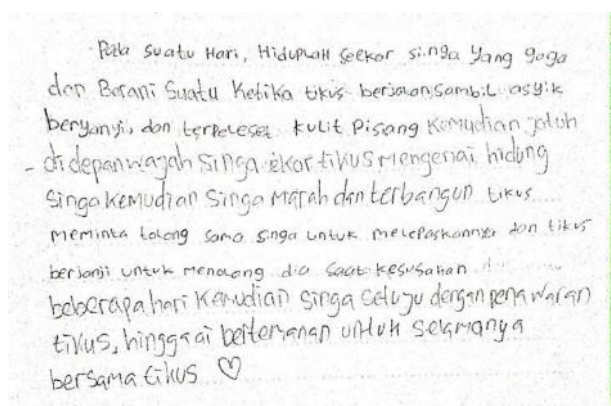 Pada suatu Hari, HidupLah seekor singa yang gaga
dan Berani Suatu Ketika tikus berjalan sambil asyik
beryanyi, dan terpeleset kulit Pisang Kemudian jatuh
- di depan wajah Singa ekor tikus mengenai hidung
Singa Kemudian Singa Marah dan terbangun tikus
meminta tolong sama singa untuk melepaskannya dan tikus
berjanji untuk menolong dia saat kesusahan
beberapa hari Kemudian singa setuju dengan penawaran
tikus, hingga berteman untuk selamanya
bersama tikus ♡